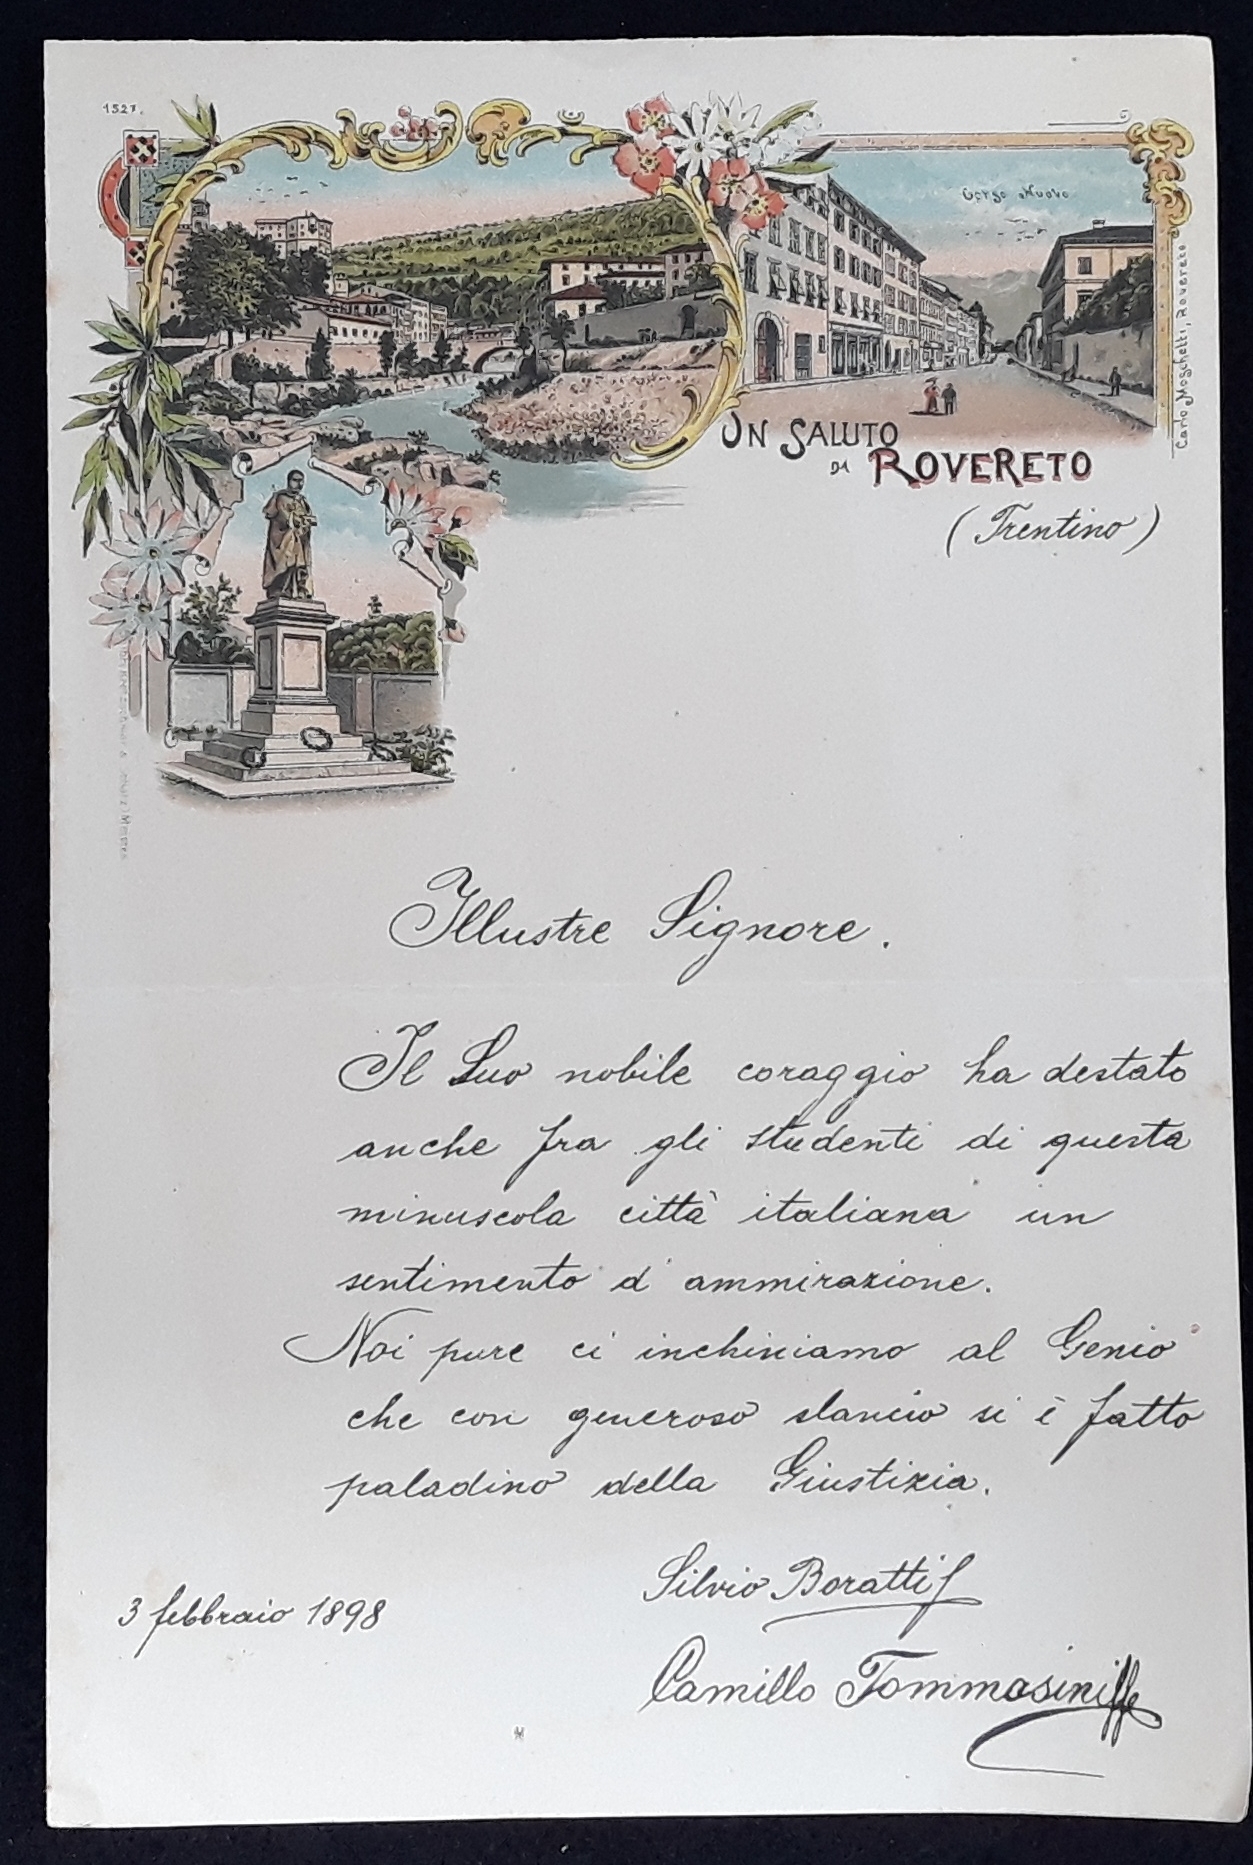 1527.
Corso Nuovo
Carlo Moschetti, Rovereto
UN SALUTO
DA ROVERETO
(Trentino)
Illustre Signore.
Il Suo nobile coraggio ha destato
anche fra gli studenti di questa
minuscola città italiana un
sentimento d'ammirazione.
Noi pure ci inchiniamo al Genio
che con generoso slancio si è fatto
paladino della Giustizia.
Silvio Boratti
3 febbraio 1898
Camillo Tommasini